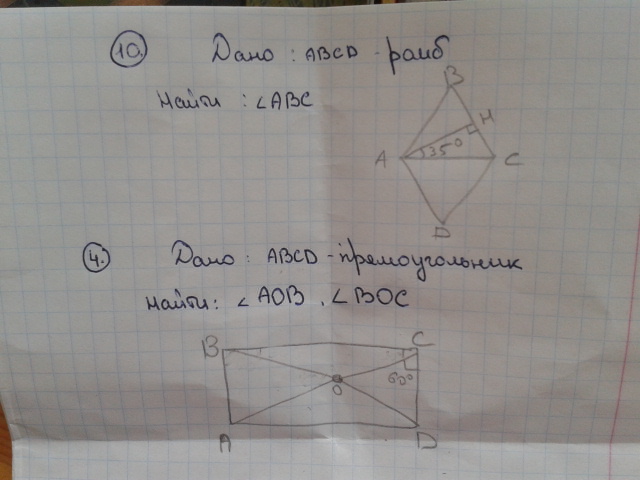 10. Дано : ABCD - ромб
Найти : ∠ABC
B
H
A
35°
C
D
4. Дано : ABCD - прямоугольник
Найти : ∠AOB , ∠BOC
B
C
60°
O
A
D